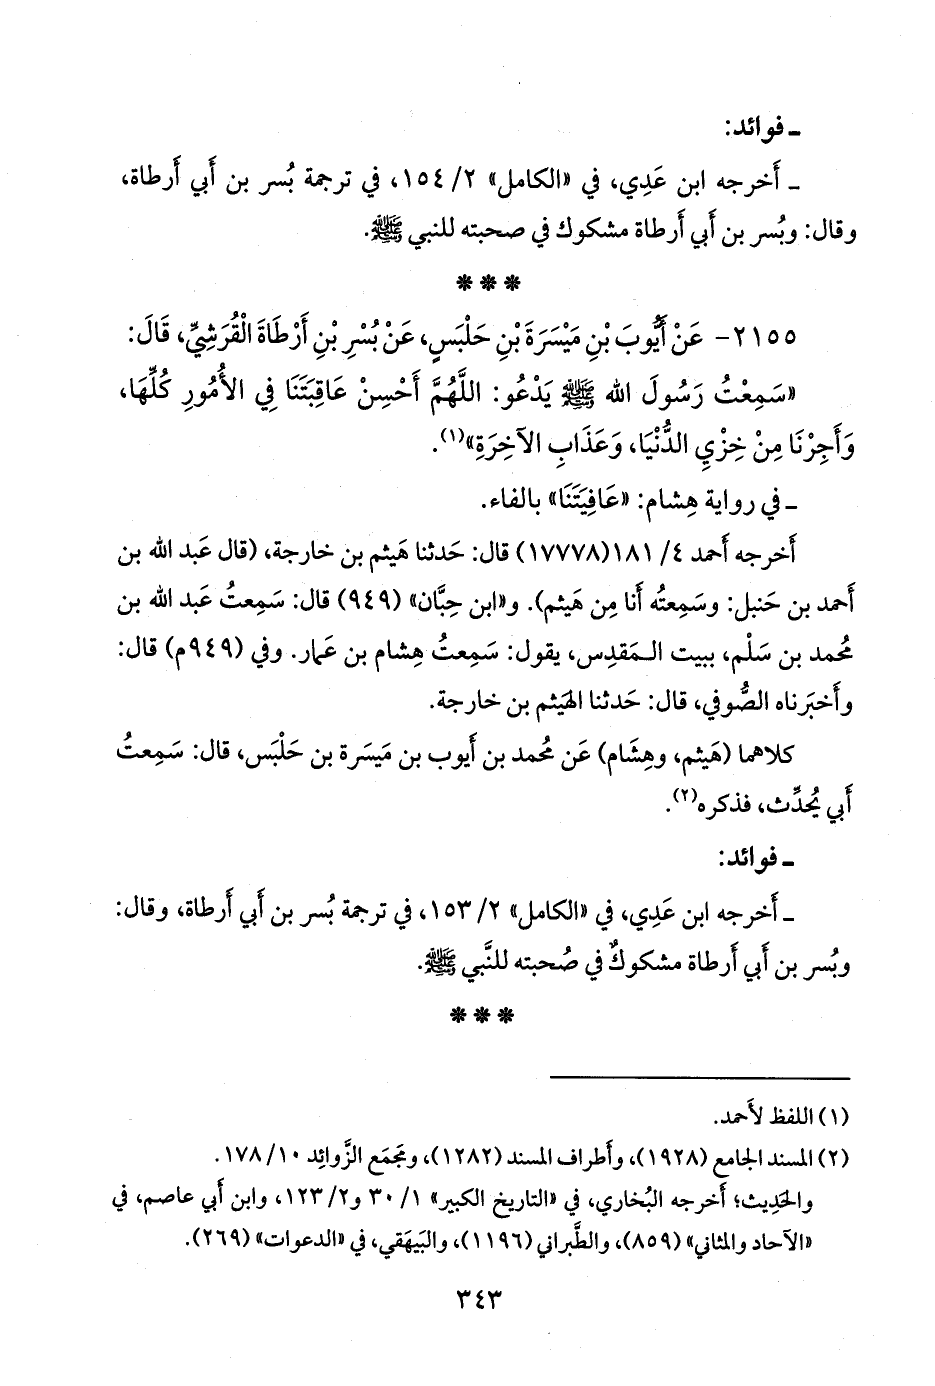 ـ فوائد:
ـ أَخرجه ابن عَدِي، في «الكامل» ٢/ ١٥٤، في ترجمة بُسر بن أَبي أَرطاة،
وقال: وبُسر بن أَبي أَرطاة مشكوك في صحبته للنبي ﷺ.
* * *
٢١٥٥- عَنْ أَيُّوبَ بْنِ مَيْسَرَةَ بْنِ حَلْبَسٍ، عَنْ بُسْرِ بْنِ أَرْطَاةَ الْقُرَشِيِّ، قَالَ:
«سَمِعْتُ رَسُولَ الله ﷺ يَدْعُو: اللَّهُمَّ أَحْسِنْ عَاقِبَتَنَا فِي الأُمُورِ كُلِّهَا،
وَأَجِرْنَا مِنْ خِزْيِ الدُّنْيَا، وَعَذَابِ الآخِرَةِ»(١).
ـ في رواية هِشام: «عَافِيَتَنَا» بالفاء.
أَخرجه أَحمد ٤/ ١٨١(١٧٧٧٨) قال: حَدثنا هَيثم بن خارجة، (قال عَبد الله بن
أَحمد بن حَنبل: وسَمِعتُه أنا مِن هَيثم). و«ابن حِبَّان» (٩٤٩) قال: سَمِعتُ عَبد الله بن
مُحمد بن سَلْم، ببيت المَقدِس، يقول: سَمِعتُ هِشام بن عَمار. وفي (٩٤٩م) قال:
وأَخبَرناه الصُّوفي، قال: حَدثنا الهَيثم بن خارجة.
كلاهما (هَيثم، وهِشَام) عَن مُحمد بن أَيوب بن مَيسَرة بن حَلْبَس، قال: سَمِعتُ
أَبي يُحدِّث، فذكره(٢).
ـ فوائد:
ـ أَخرجه ابن عَدِي، في «الكامل» ٢/ ١٥٣، في ترجمة بُسر بن أَبي أَرطاة، وقال:
وبُسر بن أَبي أَرطاة مشكوكٌ في صُحبته للنَّبي ﷺ.
* * *
(١) اللفظ لأَحمد.
(٢) المسند الجامع (١٩٢٨)، وأَطراف المسند (١٢٨٢)، ومَجمَع الزَّوائِد ١٠/ ١٧٨.
والحَدِيث؛ أَخرجه البُخاري، في «التاريخ الكبير» ١/ ٣٠ و٢/ ١٢٣، وابن أَبي عاصم، في
«الآحاد والمثاني» (٨٥٩)، والطَّبراني (١١٩٦)، والبَيهَقي، في «الدعوات» (٢٦٩).
٣٤٣